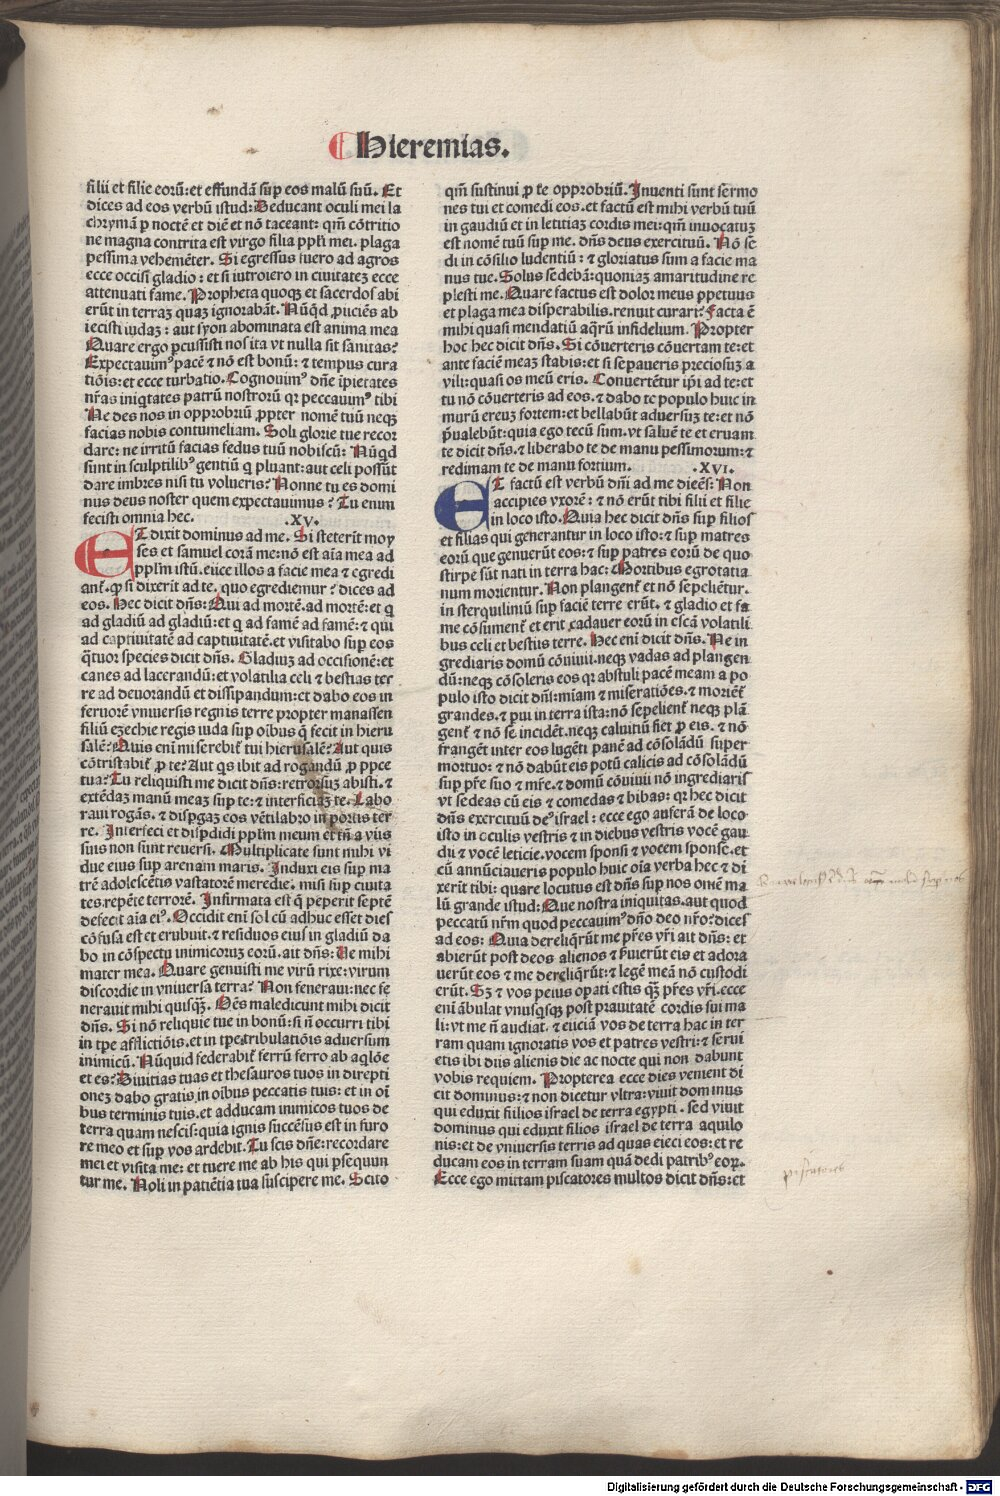 Hieremias.
filii et filie eorū: et effundā sup eos malū suū. Et
dices ad eos verbū istud: Deducant oculi mei la
chrymā p noctē et diē et nō taceant: qm̄ cōtritio
ne magna contrita est virgo filia ppl̄i mei. plaga
pessima vehemēter. Si egressus fuero ad agros
ecce occisi gladio: et si introiero in ciuitatez ecce
attenuati fame. Propheta quoqz et sacerdos abi
erūt in terraz quaz ignorabāt. Nūqd proiiciēs ab
iecisti iudaz: aut syon abominata est anima mea
Quare ergo pcussisti nos ita vt nulla sit sanitas?
Expectauimꝰ pacē & nō est bonū: & tempus cura
tiōis: et ecce turbatio. Cognouimꝰ dn̄e īpietates
nr̄as iniqtates patrū nostrorū qr peccauimꝰ tibi
Ne des nos in opprobriū ppter nomē tuū neqz
facias nobis contumeliam. Solij glorie tue recor
dare: ne irritū facias fedus tuū nobiscū: Nūqd
sunt in sculptilibꝰ gentiū q pluant: aut celi possūt
dare imbres nisi tu volueris? Nonne tu es domi
nus deus noster quem expectauimus? Tu enim
fecisti omnia hec. .XV.
ET dixit dominus ad me. Si steterit moy
ses et samuel corā me: nō est aīa mea ad
pplm̄ istū. eiice illos a facie mea & egredi
ant̄. qp si dixerit ad te. quo egrediemur? dices ad
eos. Hec dicit dn̄s: Qui ad mortē. ad mortē: et q
ad gladiū ad gladiū: et q ad famē ad famē: & qui
ad captiuitatē ad captiuitatē. et visitabo sup eos
qtuor species dicit dn̄s. Gladiuz ad occisionē: et
canes ad lacerandū: et volatilia celi & bestias ter
re ad deuorandū et dissipandum: et dabo eos in
feruorē vniuersis regnis terre propter manassen
filiū ezechie regis iuda sup oībus q fecit in hieru
salē? Quis enī miserebit̄ tui hierusalē? Aut quis
cōtristabit̄ p te? Aut qs ibit ad rogandū p pace
tua? Tu reliquisti me dicit dn̄s: retrorsuz abisti. &
extēdaz manū meaz sup te: & interficiaz te. Labo
raui rogās. & dispgaz eos vētilabro in portis ter
re. Interfeci et dispdidi pplm̄ meum et tn̄ a viis
suis non sunt reuersi. Multiplicate sunt mihi vi
due eius sup arenam maris. Induxi eis sup ma
trē adolescētis vastatorē meredie. misi sup ciuita
tes repēte terrorē. Infirmata est q peperit septē
defecit aīa eiꝰ. Occidit enī sol cū adhuc esset dies
cōfusa est et erubuit. & residuos eius in gladiū da
bo in cōspectu inimicorum eorū. ait dn̄s: Ve mihi
mater mea. Quare genuisti me virū rixe: virum
discordie in vniuersa terra? Non feneraui: nec fe
nerauit mihi quisqz. Oēs maledicunt mihi dicit
dn̄s. Si nō reliquie tue in bonū: si n̄ occurri tibi
in tpe afflictiōis. et in tpe tribulatiōis aduersum
inimicū. Nūquid federabit̄ ferrū ferro ab aqlōe
et es? Diuitias tuas et thesauros tuos in direpti
onez dabo gratis in oībus peccatis tuis: et in oī
bus terminis tuis. et adducam inimicos tuos de
terra quam nescis: quia ignis succēsus est in furo
re meo et sup vos ardebit. Tu scis dn̄e: recordare
mei et visita me: et tuere me ab his qui psequun
tur me. Noli in patiētia tua suscipere me. Scito
qm̄ sustinui p te opprobriū. Inuenti sunt sermo
nes tui et comedi eos. et factū est mihi verbū tuū
in gaudiū et in letitiaz cordis mei: qm̄ inuocatuz
est nomē tuū sup me. dn̄s deus exercituū. Nō se
di in cōsilio ludentiū: & gloriatus sum a facie ma
nus tue. Solus sedebā: quoniaz amaritudine re
plesti me. Quare factus est dolor meus ppetuus
et plaga mea disperabilis. renuit curari? Facta ē
mihi quasi mendatiū aqrū infidelium. Propter
hoc hec dicit dn̄s. Si cōuerteris cōuertam te: et
ante faciē meaz stabis: et si sepaueris preciosuz a
vili: quasi os meū eris. Conuertētur ip̄i ad te: et
tu nō cōuerteris ad eos. & dabo te populo huic in
murū ereuz fortem: et bellabūt aduersuz te: et nō
p̄ualebūt: quia ego tecū sum. vt saluē te et eruam
te dicit dn̄s. & liberabo te de manu pessimorum: &
redimam te de manu fortium. .XVI.
ET factū est verbū dn̄i ad me diceēs: Non
accipies vxorē: & nō erūt tibi filii et filie
in loco isto. Quia hec dicit dn̄s sup filios
et filias qui generantur in loco isto: & sup matres
eorū que genuerūt eos: & sup patres eorū de quo
stirpe sūt nati in terra hac: Mortibus egrotatia
num morientur. Non plangent̄ et nō sepelient̄ur.
in sterquiliniū sup faciē terre erūt. & gladio et fa
me cōsument̄ et erit cadauer eorū in escā volatili
bus celi et bestiis terre. Hec eni dicit dn̄s. Ne in
grediaris domū cōuiuii. neqz vadas ad plangen
dū: neqz cōsoleris eos qr abstuli pacē meam a po
pulo isto dicit dn̄s: miam & miseratiōes. & moriēt̄
grandes. & pui in terra ista: nō sepelient̄ neqz plā
gent̄ & nō se incidēt. neqz caluitiū fiet p eis. & nō
frangēt inter eos lugēti panē ad cōsolādū super
mortuo: & nō dabūt eis potū calicis ad cōsolādū
sup pr̄e suo & mr̄e. & domū cōuiuii nō ingrediaris
vt sedeas cū eis & comedas & bibas: qr hec dicit
dn̄s exercituū deꝰ israel: ecce ego auferā de loco
isto in oculis vestris & in diebus vestris vocē gau
dii & vocē leticie. vocem sponsi & vocem sponse. et
cū annūciaueris populo huic oīa verba hec & di
xerit tibi: quare locutus est dn̄s sup nos omē ma
lū grande istud: Que nostra iniquitas. aut quod
peccatū nr̄m quod peccauimꝰ dn̄o deo nr̄o? dices
ad eos: Quia dereliqrūt me pr̄es vr̄i ait dn̄s: et
abierūt post deos alienos & s̄uierūt eis et adora
uerūt eos & me dereliqrūt: & legē meā nō custodi
erūt. Sz & vos peius opati estis qz pr̄es vr̄i. ecce
eni ābulat vnusqsqz post prauitatē cordis sui ma
li: vt me n̄ audiat. & eiiciā vos de terra hac in ter
ram quam ignoratis vos et patres vestri: & serui
etis ibi diis alienis die ac nocte qui non dabunt
vobis requiem. Propterea ecce dies venient di
cit dominus: & non dicetur vltra: viuit dominus
qui eduxit filios israel de terra egypti. sed viuit
dominus qui eduxit filios israel de terra aquilo
nis: et de vniuersis terris ad quas eieci eos: et re
ducam eos in terram suam quā dedi patribꝰ eoꝝ.
Ecce ego mittam piscatores multos dicit dn̄s: et
piscatores
Digitalisierung gefördert durch die Deutsche Forschungsgemeinschaft - DFG